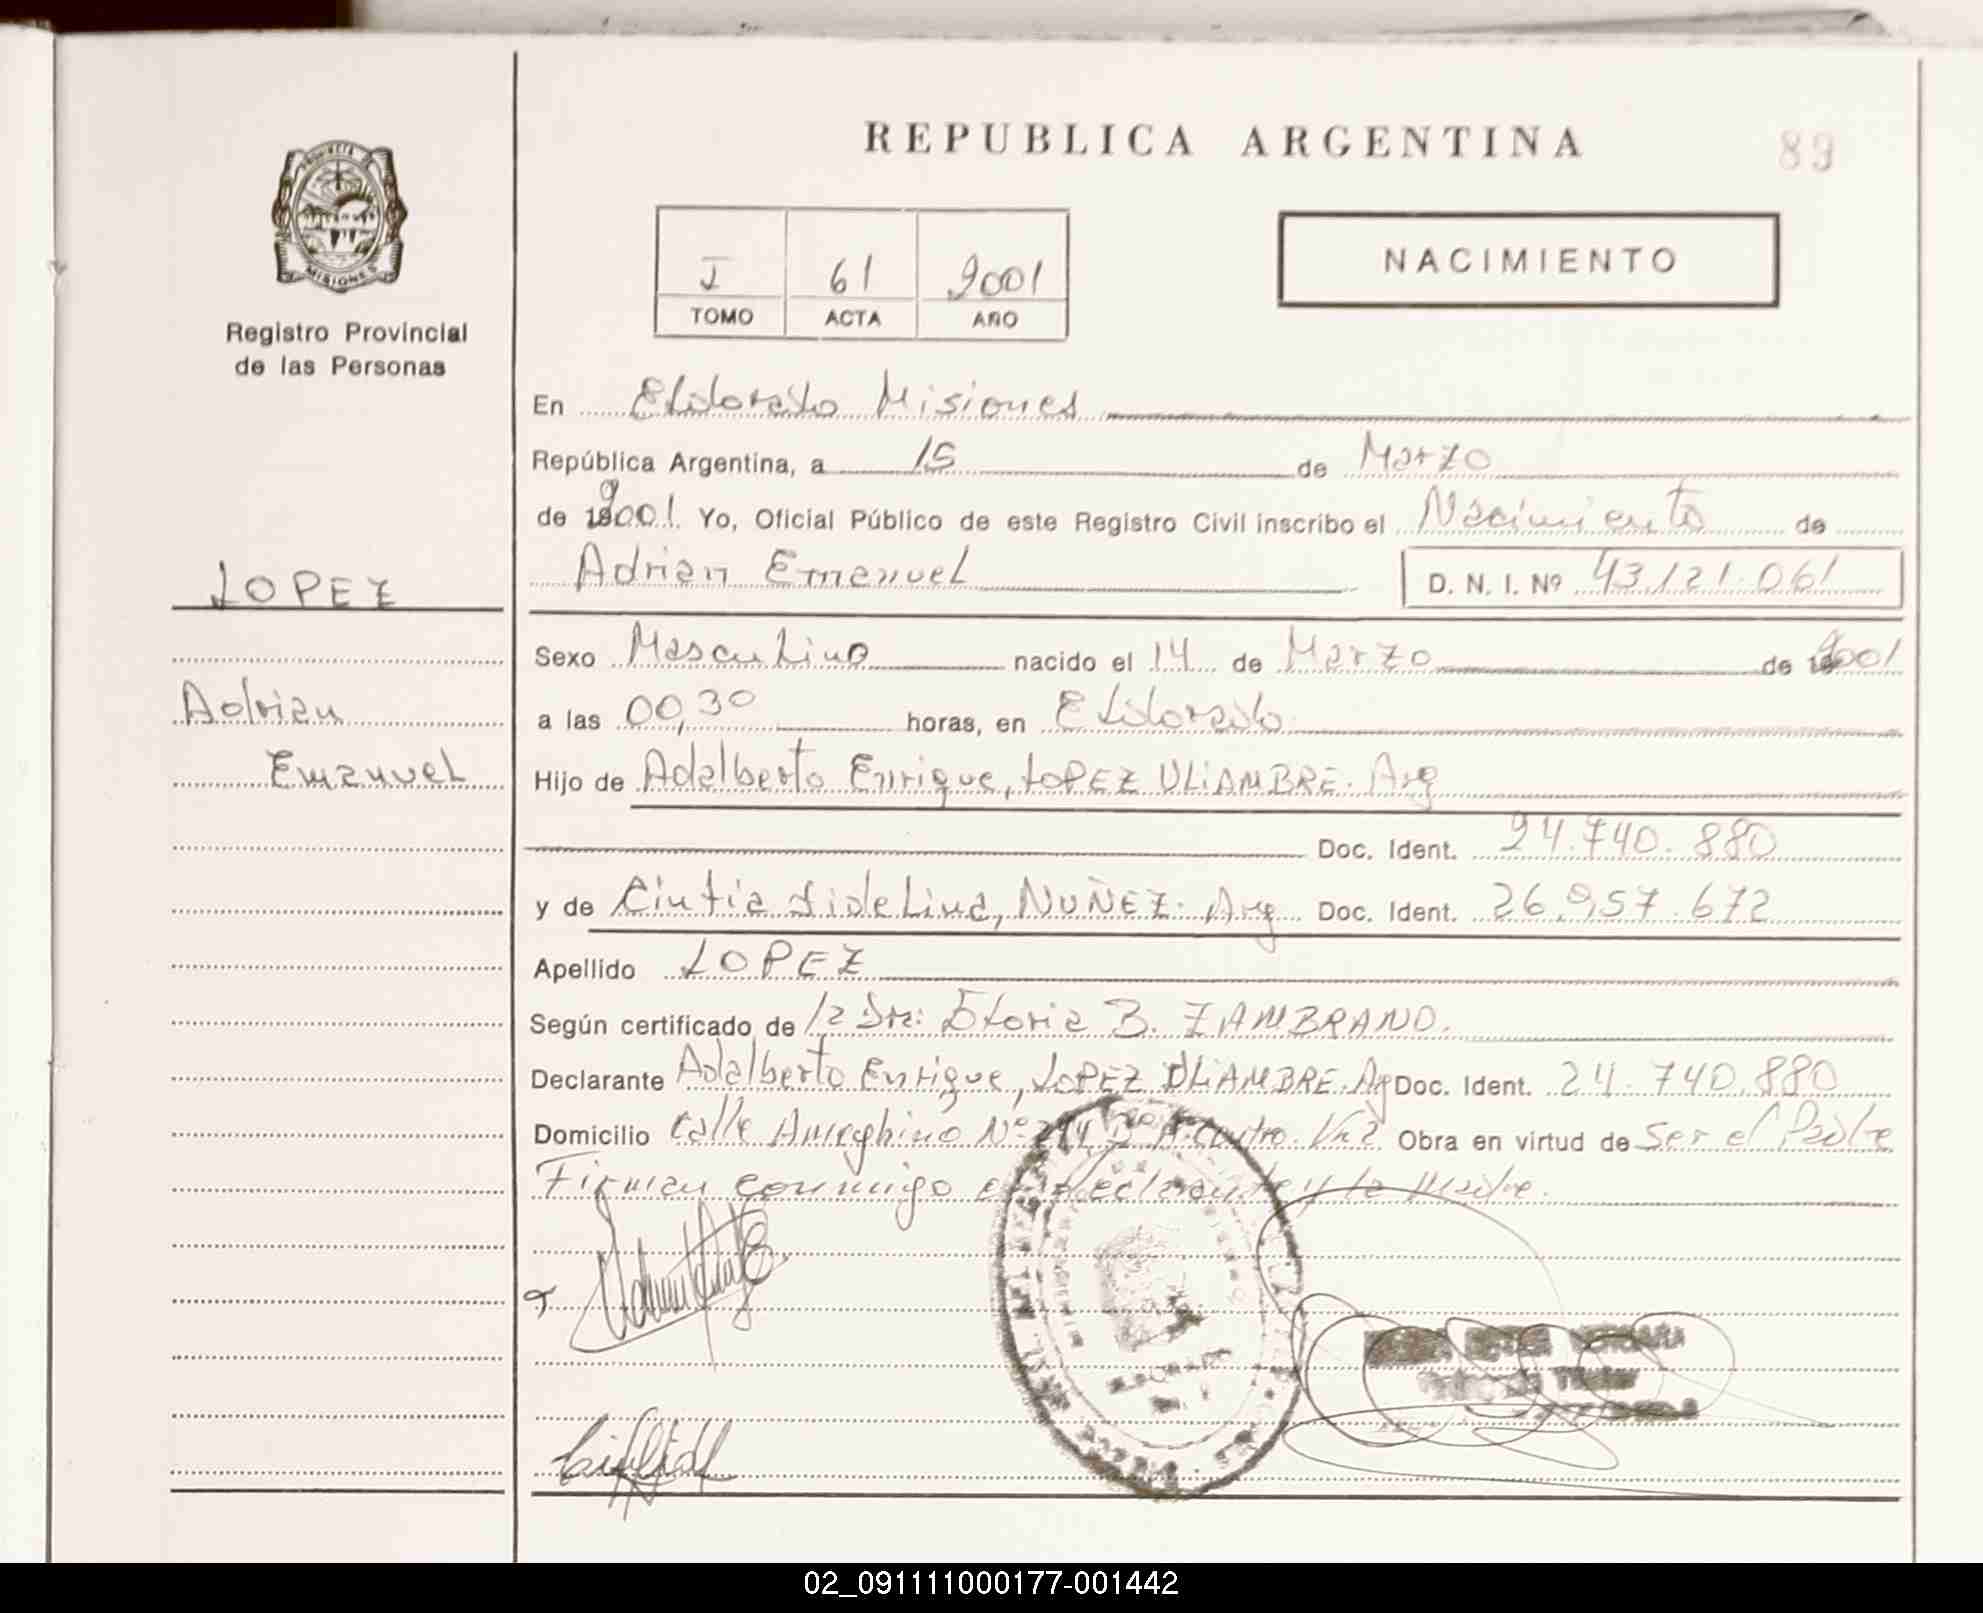 REPUBLICA ARGENTINA
89
PROVINCIA DE
MISIONES
Registro Provincial
de las Personas
I 61 2001
TOMO ACTA AÑO
NACIMIENTO
En Eldorado Misiones
República Argentina, a 15 de Marzo
de 2001. Yo, Oficial Público de este Registro Civil inscribo el Nacimiento de
Adrian Emanuel D. N. I. Nº 43.121.061
LOPEZ
Adrian
Emanuel
Sexo Masculino nacido el 14 de Marzo de 2001
a las 00,30 horas, en Eldorado
Hijo de Adalberto Enrique, LOPEZ ULIAMBRE. Arg
Doc. Ident. 24.740.880
y de Cintia Fidelina, NUÑEZ. Arg Doc. Ident. 26.957.672
Apellido LOPEZ
Según certificado de la Dra: B. ZAMBRANO.
Declarante Adalberto Enrique, LOPEZ ULIAMBRE. Ag Doc. Ident. 24.740.880
Domicilio Calle Ameghino Nº Obra en virtud de Ser el Padre
Firman conmigo el declarante y la Madre.
02_091111000177-001442